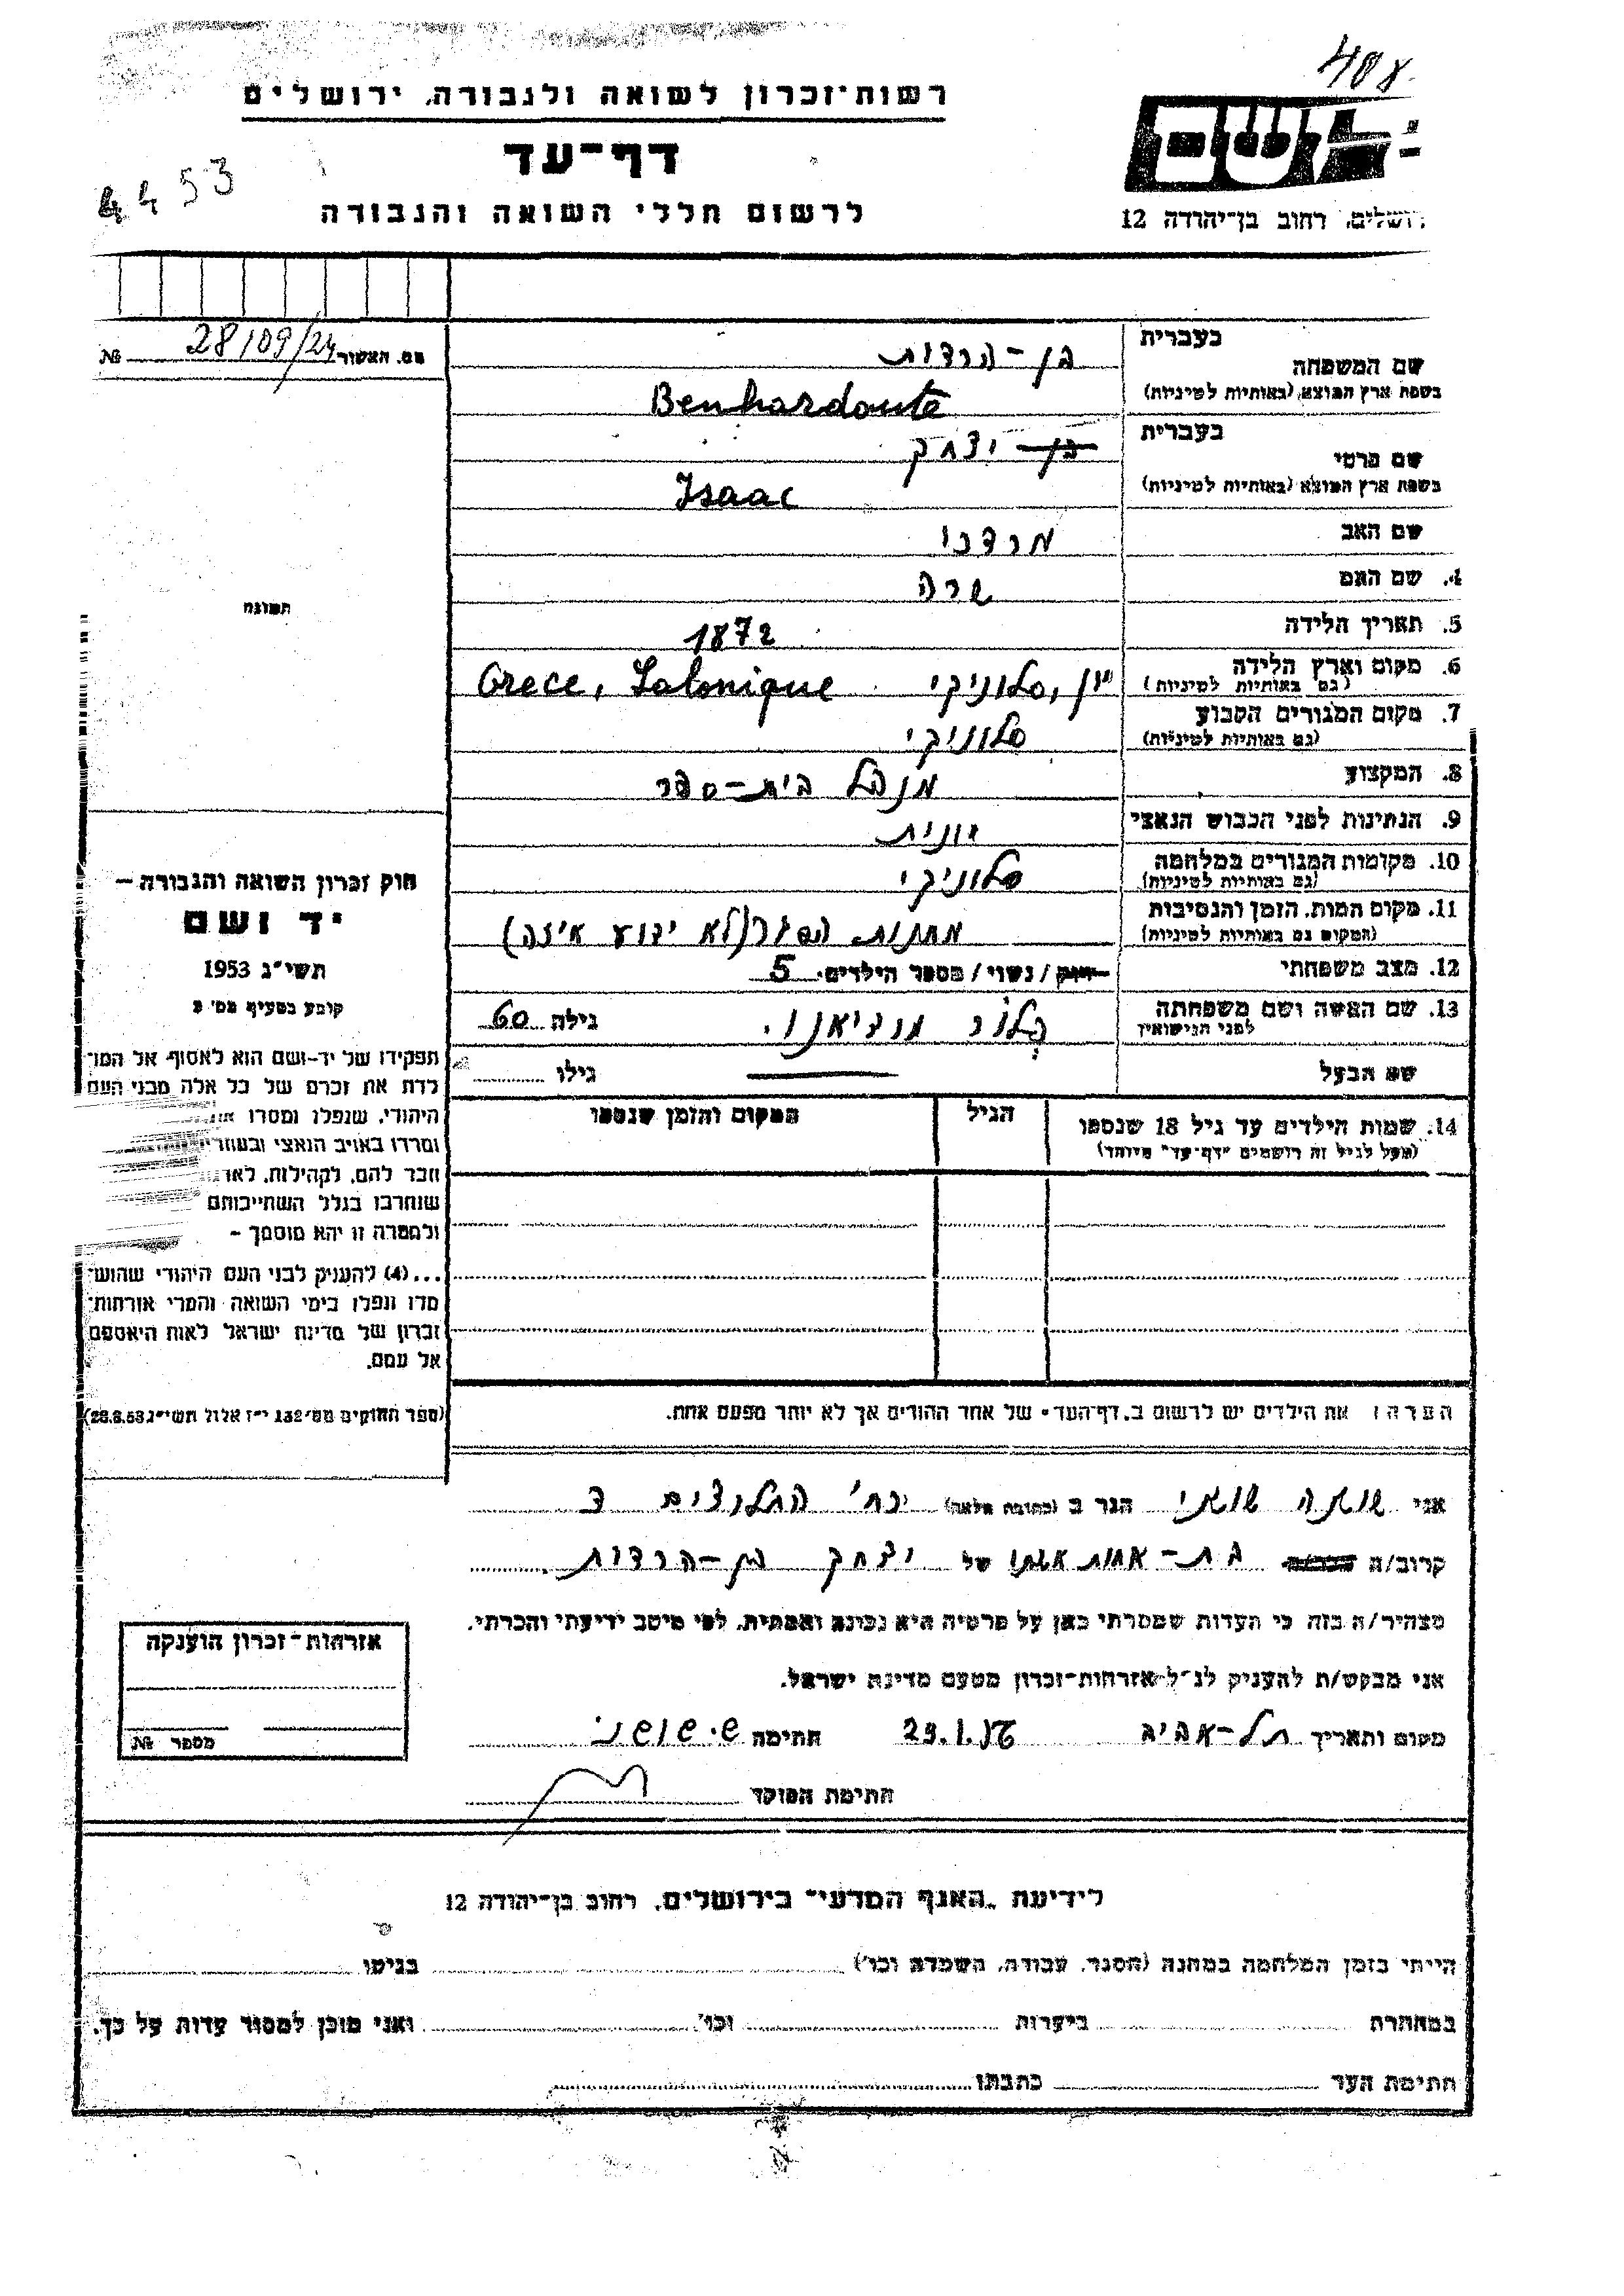 408
רשות־זכרון לשואה ולגבורה, ירושלים
דף־עד
4453
לרשום חללי השואה והגבורה
ירושלים, רחוב בן־יהודה 12
מס. האשור 28109/24 №
בעברית
שם המשפחה
בן-הרדות
בשפת ארץ המוצא (באותיות לטיניות)
Benhardoute
בעברית
שם פרטי
בן- יצחק
בשפת ארץ המוצא (באותיות לטיניות)
Isaac
שם האב מרדכי
4. שם האם שרה
תמונה
5. תאריך הלידה 1872
6. מקום וארץ הלידה
(גם באותיות לטיניות)
יון, סלוניקי Grece, Salonique
7. מקום המגורים הקבוע
(גם באותיות לטיניות)
סלוניקי
8. המקצוע מנהל בית-ספר
9. הנתינות לפני הכבוש הנאצי יונית
10. מקומות המגורים במלחמה
(גם באותיות לטיניות)
סלוניקי
11. מקום המות, הזמן והנסיבות
(המקום גם באותיות לטיניות)
מחנות הסגר (לא ידוע איזה)
12. מצב משפחתי רווק / נשוי / מספר הילדים 5
13. שם האשה ושם משפחתה
לפני הנישואין
גילה 60
שם הבעל גילו
חוק זכרון השואה והגבורה –
יד ושם
תשי״ג 1953
קובע בסעיף מס' 2
תפקידו של יד-ושם הוא לאסוף אל המו־
לדת את זכרם של כל אלה מבני העם
היהודי, שנפלו ומסרו
ומרדו באויב הנאצי
וזכר להם, לקהילות,
שנחרבו בגלל השתייכותם
ולמטרה זו יהא מוסמך –
...(4) להעניק לבני העם היהודי שהוש־
מדו ונפלו בימי השואה והמרי אזרחות־
זכרון של מדינת ישראל לאות היאספם
אל עמם.
(ספר החוקים מס׳ 132 י״ז אלול תשי״ג 28.8.53)
14. שמות הילדים עד גיל 18 שנספו
(מעל לגיל זה רושמים "דף-עד" מיוחד)
הגיל
המקום והזמן שנספו
הערה: את הילדים יש לרשום ב"דף-העד" של אחד ההורים אך לא יותר מפעם אחת.
אני הגר ב (כתובת מלאה) החלוצים
קרוב/ה בת-אחות אשתו של יצחק בן-הרדות
מצהיר/ה בזה כי העדות שמסרתי כאן על פרטיה היא נכונה ואמתית, לפי מיטב ידיעתי והכרתי.
אני מבקש/ת להעניק לנ״ל אזרחות־זכרון מטעם מדינת ישראל.
מקום ותאריך תל-אביב 23.1.56 חתימה
חתימת הפוקד
אזרחות־זכרון הוענקה
מספר №
לידיעת "האגף המדעי" בירושלים, רחוב בן־יהודה 12
הייתי בזמן המלחמה במחנה (הסגר, עבודה, השמדה וכו׳) בגיטו
במחתרת ביערות וכו׳ ואני מוכן למסור עדות על כך.
חתימת העד כתבתו